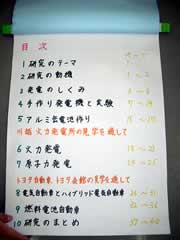 目次
1 研究のテーマ
2 研究の動機 1~2
3 発電のしくみ 3~6
4 手作り発電機と実験 7~14
5 アルミ缶電池作り 15~17
川越火力発電所の見学を通して
6 火力発電 18~
7 原子力発電 ~25
トヨタ自動車 トヨタ会館の見学を通して
8 電気自動車とハイブリッド電気自動車 26~31
9 燃料電池自動車 32~36
10 研究のまとめ 37~40